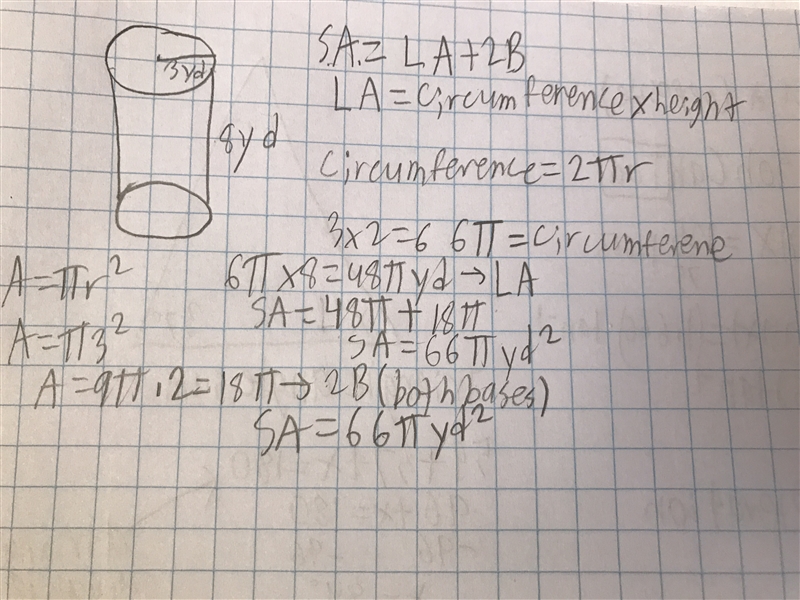 3yd
8yd
S.A.=LA+2B
LA=circumference×height
circumference=2πr
3×2=6 6π=circumferene
6π×8=48πyd→LA
SA=48π+18π
SA=66πyd²
A=πr²
A=π3²
A=9π·2=18π→2B(both bases)
SA=66πyd²